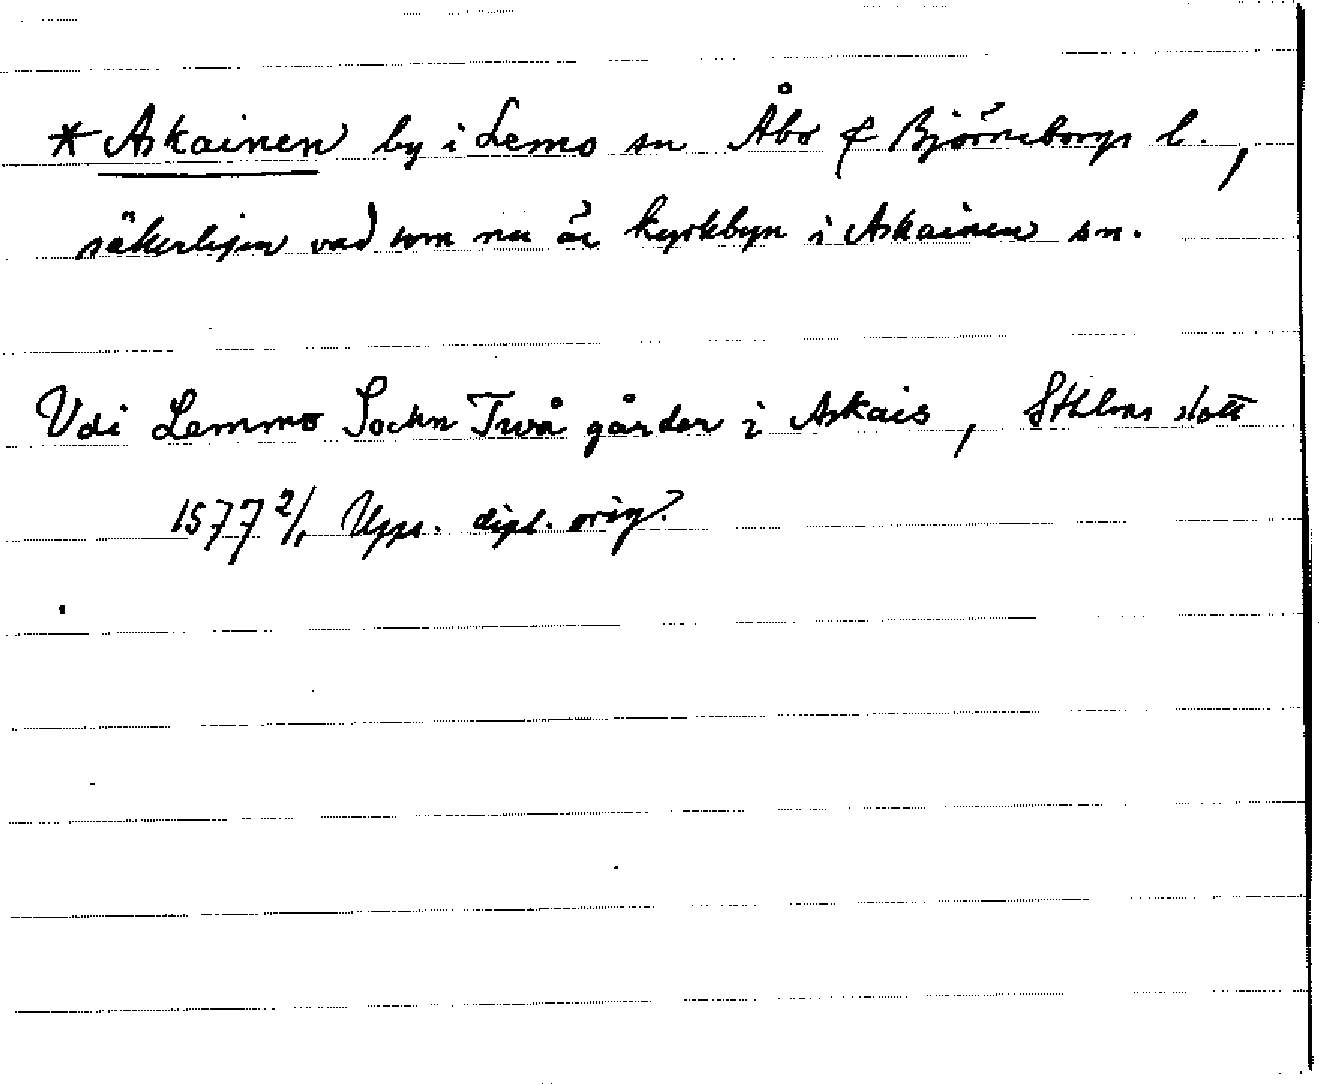 * Askainen by i Lemo sn Åbo & Björneborgs l.,
säkerligen vad som nu är kyrkbyn i Askainen sn.
Vdi Lemmo Sochn Twå gårder i Askais, Sthlms slott
1577 2/1 Upps. dipl. orig.